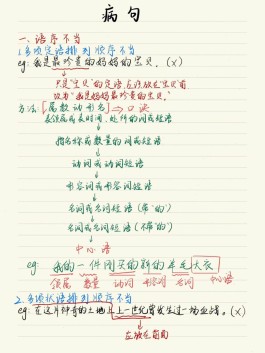 病句
一、语序不当
1.多项定语排列顺序不当
eg: 我是最珍贵的妈妈的宝贝。(×)
"宝贝"的定语,应该放在"宝贝"前
改为"我是妈妈最珍贵的宝贝。"
方法:[属数动形名]⇒口诀
表领属或表时间、处所的词或短语
指名称或数量的词或短语
动词或动词短语
形容词或形容词短语
名词或名词短语(带"的")
名词或名词短语(不带"的")
中心语
eg: 我的一件刚买的新的羊毛大衣
领属 数量 动词 形容词 名词 中心语
2.多项状语排列顺序不当
eg: 在这片神奇的土地上上一世纪曾发生过一场血战。(×)
应放在前面